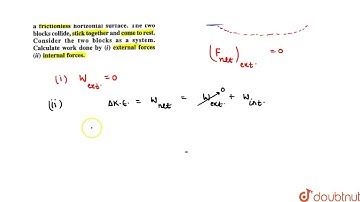 a frictionless horizontal surface. The two
blocks collide, stick together and come to rest.
Consider the two blocks as a system.
Calculate work done by (i) external forces
(ii) internal forces.
(F net) ext. = 0
(i) W ext. = 0
(ii) ΔK.E. = W net = W ext. 0 + W int.
doubtnut